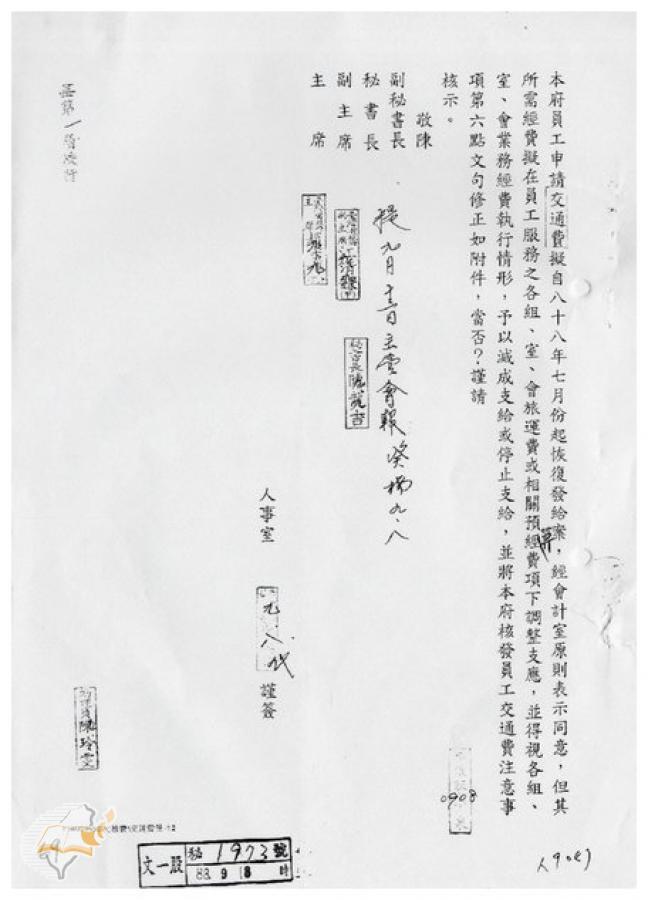 本府員工申請交通費擬自八十八年七月份起恢復發給案，經會計室原則表示同意，但其
所需經費擬在員工服務之各組、室、會旅運費或相關預算經費項下調整支應，並得視各組、
室、會業務經費執行情形，予以減成支給或停止支給，並將本府核發員工交通費注意事
項第六點文句修正如附件，當否？謹請
核示。
敬陳
副秘書長
秘書長
副主席
主席
提九月
主管會報
九·八
人事室
九·八代
謹簽
陳玲雯
0908
文一股
秘1973號
88 9 8 時